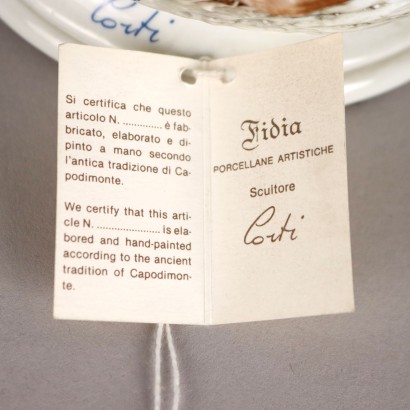 Corti
Si certifica che questo
articolo N. ............. è fab-
bricato, elaborato e di-
pinto a mano secondo
l'antica tradizione di Ca-
podimonte.
We certify that this arti-
cle N. ..................... is ela-
bored and hand-painted
according to the ancient
tradition of Capodimon-
te.
Fidia
PORCELLANE ARTISTICHE
Scultore
Corti